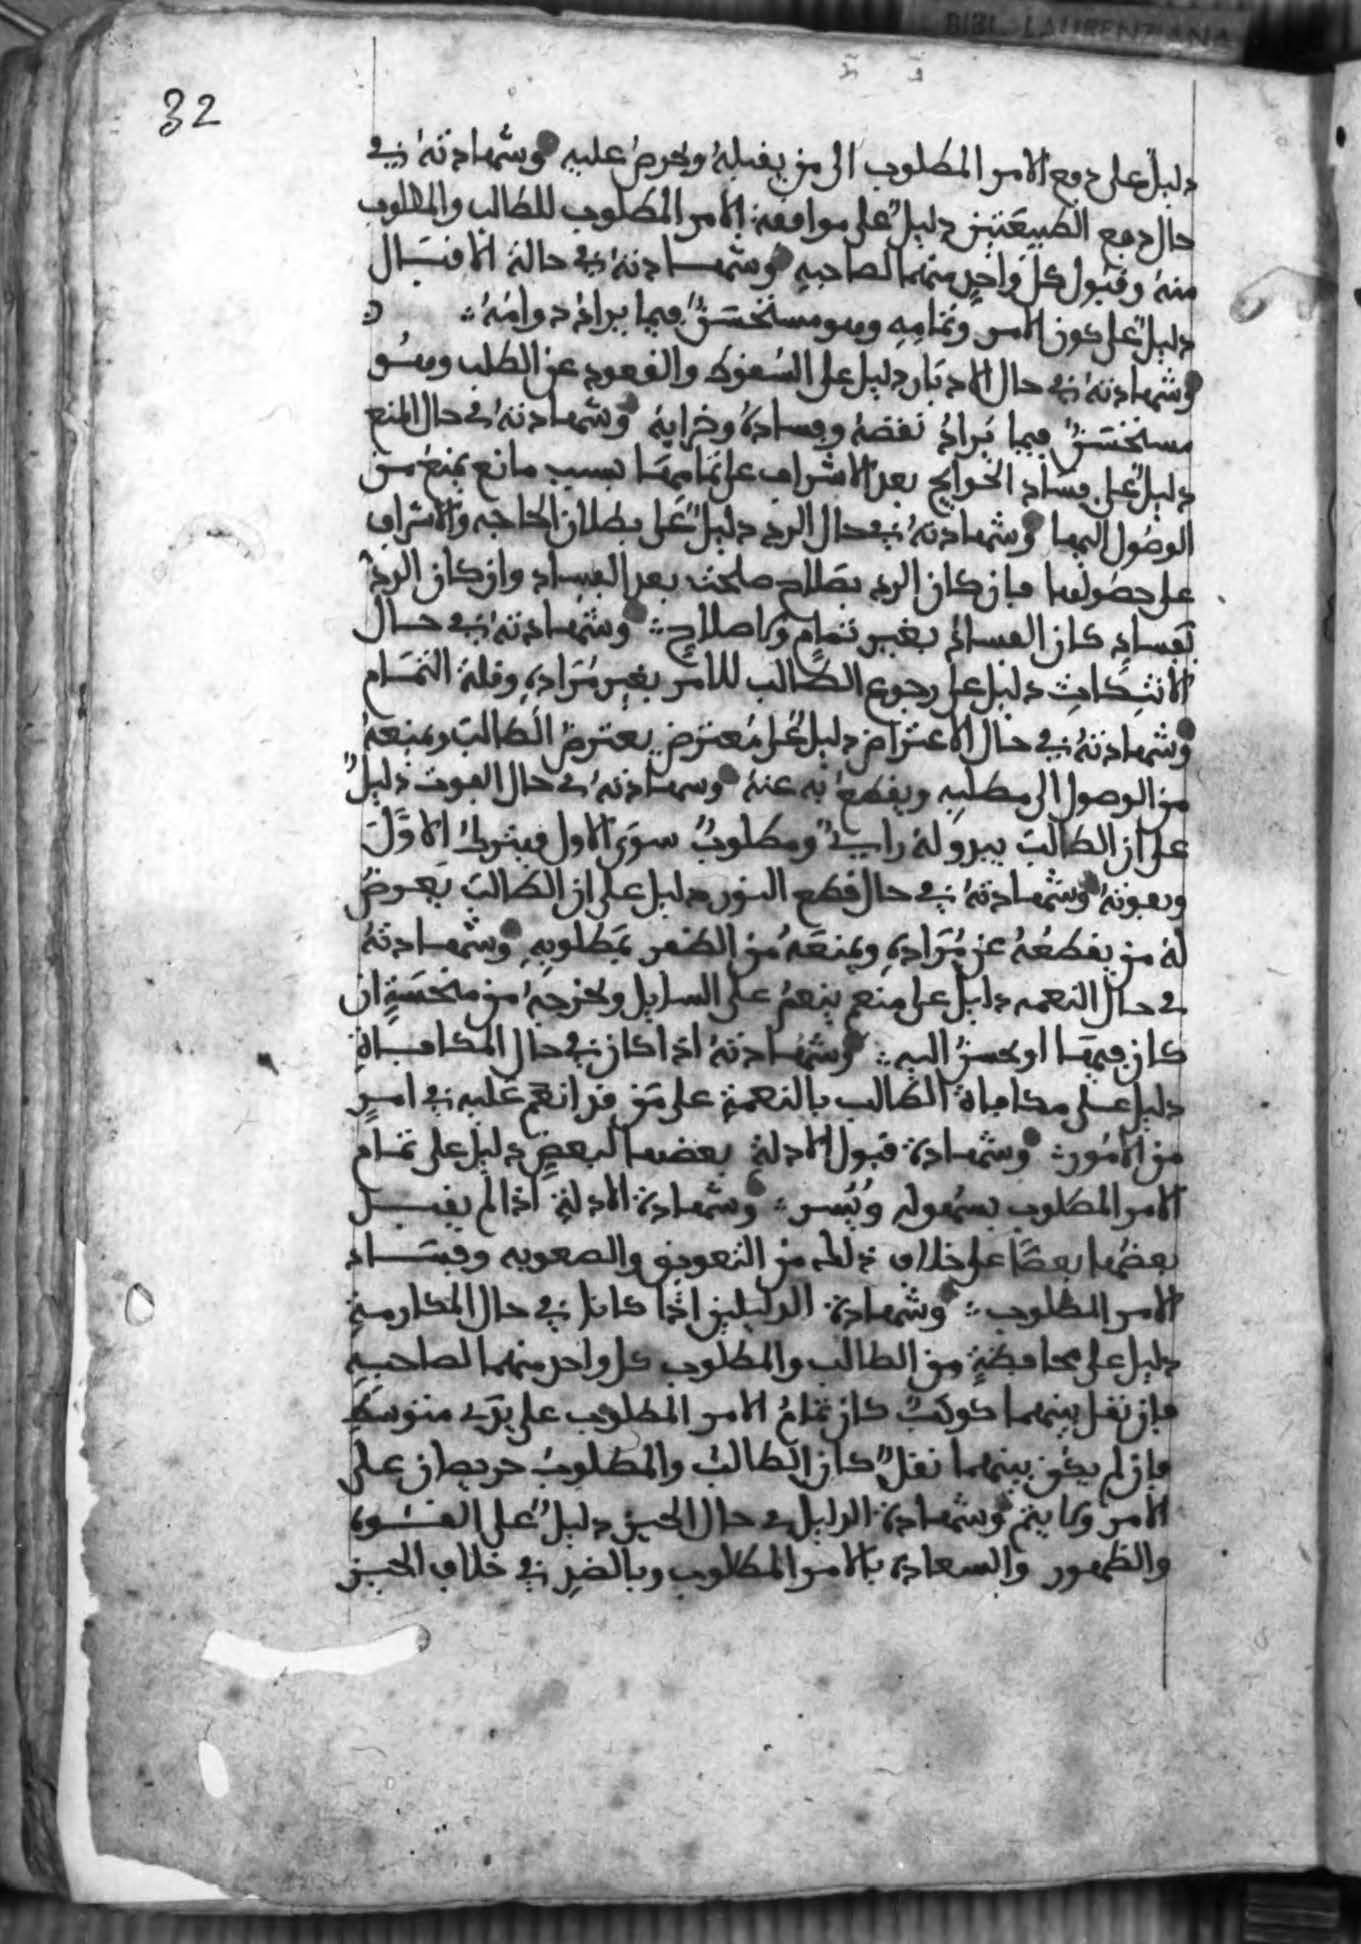 BIBL. LAURENZIANA
32
دليل على دفع الامر المطلوب الى من يقبله ويحرص عليه وشهادته في
حال دفع الطبيعتين دليل على موافقة الامر المطلوب للطالب والمطلوب
منه وقبول كل واحد منهما لصاحبه وشهادته في حالة الاقبال
دليل على كون الامر وتمامه وهو مستحسن فيما يراد دوامه
وشهادته في حال الادبار دليل على السقوط والقعود عن الطلب وهو
مستحسن فيما يراد نقضه وفساده وخرابه وشهادته في حال المنع
دليل على فساد الحوايج بعد الاشراف على تمامها بسبب مانع يمنع من
الوصول اليها وشهادته في حال الرد دليل على بطلان الحاجه والاشراف
على حصولها فان كان الرد بصلاح صلحت بعد الفساد وان كان الرد
بفساد كان الفساد بغير تمام ولا صلاح وشهادته في حال
الانتكاث دليل على رجوع الطالب للامر بغير مراده وقلة التمام
وشهادته في حال الاعتراض دليل على معترض يعترض الطالب ويمنعه
من الوصول الى مطلبه ويقطع به عنه وشهادته في حال الفوت دليل
على ان الطالب يبدو له راي ومطلوب سوى الاول فيترك الاول
ويفوته وشهادته في حال قطع النور دليل على ان الطالب يعرض
له من يقطعه عن مراده ويمنعه من الظفر بمطلوبه وشهادته
في حال النعمه دليل على منعم ينعم على السايل ويخرجه من منحسة ان
كان فيها او يحسن اليه وشهادته اذا كان في حال المكافاة
دليل على مكافاة الطالب بالنعمة على من قد انعم عليه في امر
من الامور وشهادة قبول الادلة بعضها لبعض دليل على تمام
الامر المطلوب بسهوله ويسر وشهادة الادلة اذا لم يقبل
بعضها بعضا على خلاف ذلك من التعويق والصعوبه وفساد
الامر المطلوب وشهادة الدليلين اذا كانا في حال المكارمة
دليل على محافظة من الطالب والمطلوب كل واحد منهما لصاحبه
فان نقل بينهما كوكب كان تمام الامر المطلوب على يدي متوسط
فان لم يكن بينهما نقل كان الطالب والمطلوب حريصان على
الامر ولا يتم وشهادة الدليل في حال الحيز دليل على القوه
والظهور والسعادة بالامر المطلوب وبالضد في خلاف الحيز